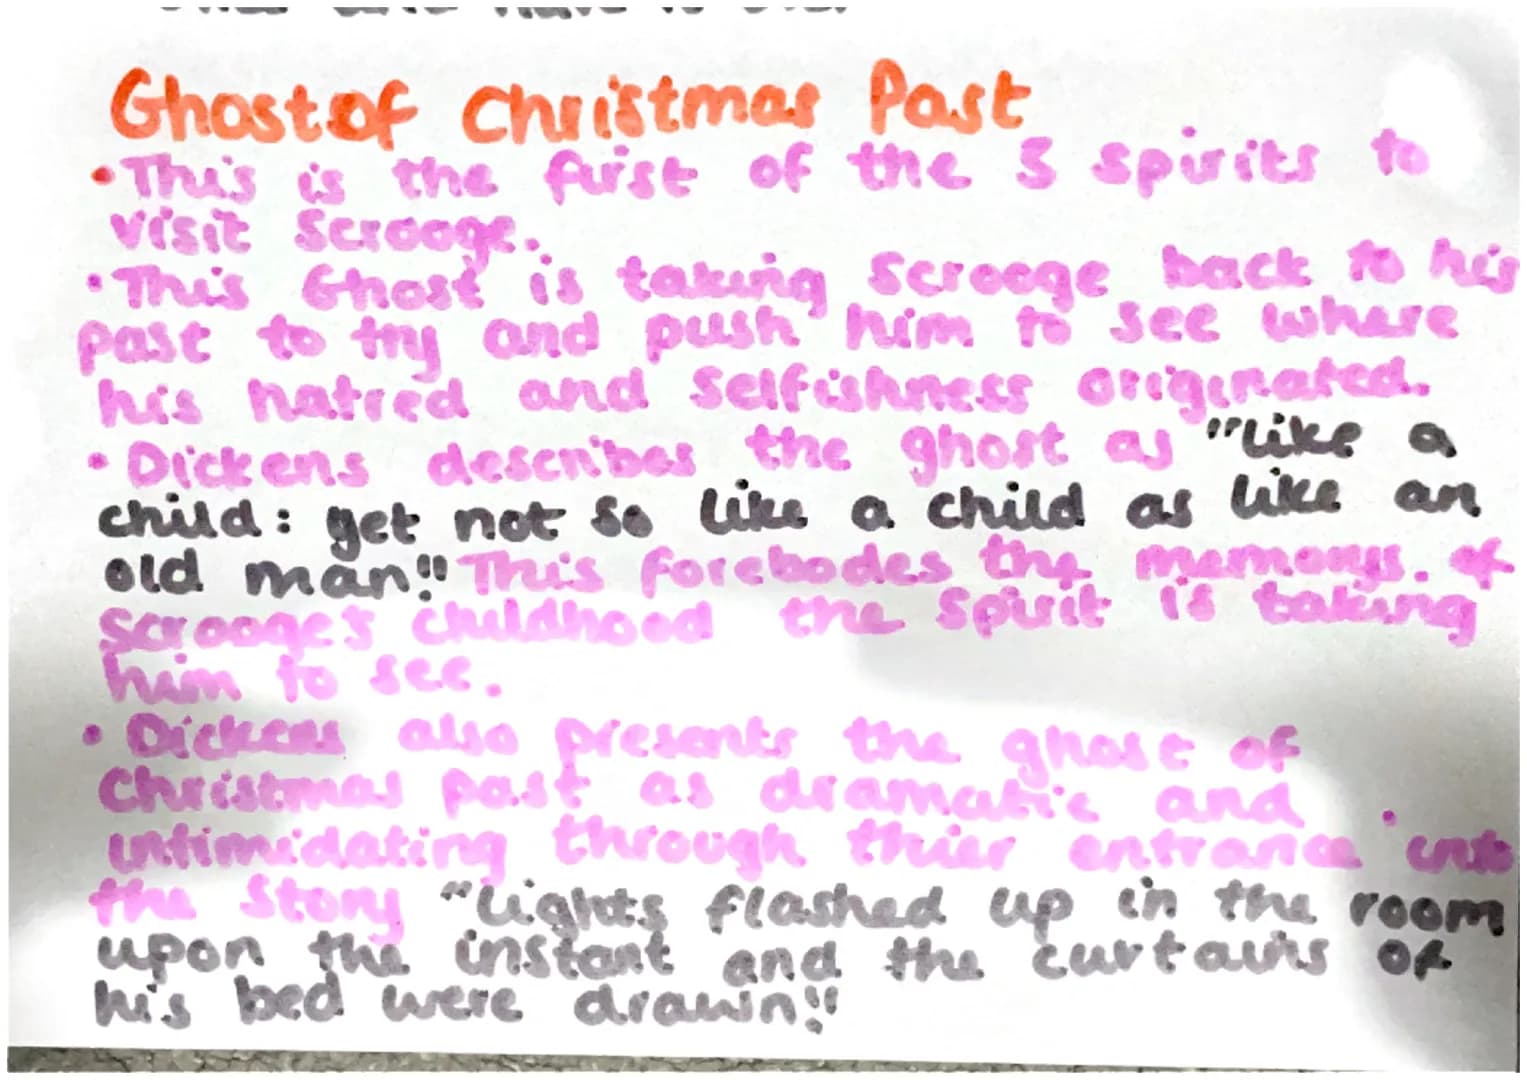 Ghost of Christmas Past
• This is the first of the 3 spirits to
visit Scrooge.
• This Ghost is taking Scrooge back to his
past to try and push him to see where
his hatred and selfishness originated.
• Dickens describes the ghost as "like a
child: yet not so like a child as like an
old man" This forebodes the memorys. of
Scrooge's childhood the spirit is taking
him to see.
• Dickens also presents the ghost of
Christmas past as dramatic and
intimidating through thier entrance into
the story "Lights flashed up in the room
upon the instant and the curtains of
his bed were drawn"